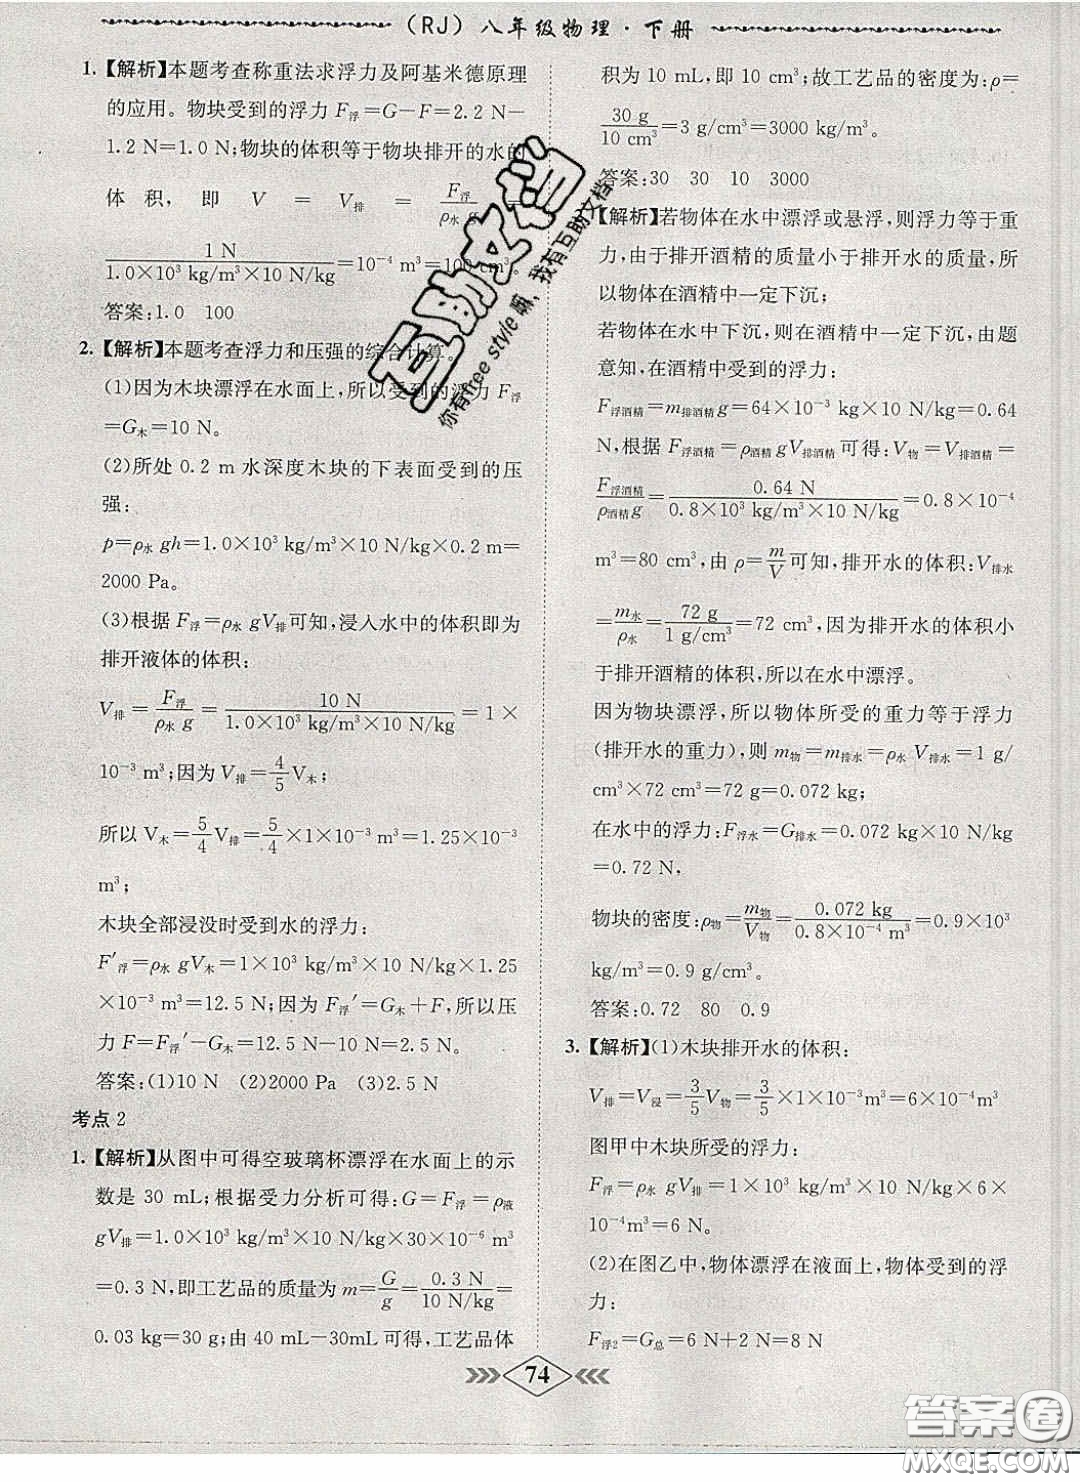 (RJ)八年级物理·下册
1.【解析】本题考查称重法求浮力及阿基米德原理
的应用。物块受到的浮力 F浮=G-F=2.2 N-
1.2 N=1.0 N;物块的体积等于物块排开的水的
体积,即 V=V排=F浮/ρ水 g=
1 N/1.0×10³ kg/m³×10 N/kg=10⁻⁴ m³=100 cm³。
答案:1.0 100
2.【解析】本题考查浮力和压强的综合计算。
(1)因为木块漂浮在水面上,所以受到的浮力 F浮
=G木=10 N。
(2)所处 0.2 m 水深度木块的下表面受到的压
强:
p=ρ水 gh=1.0×10³ kg/m³×10 N/kg×0.2 m=
2000 Pa。
(3)根据 F浮=ρ水 gV排可知,浸入水中的体积即为
排开液体的体积:
V排=F浮/ρ水 g=10 N/1.0×10³ kg/m³×10 N/kg=1×
10⁻³ m³;因为 V排=4/5V木;
所以 V木=5/4V排=5/4×1×10⁻³ m³=1.25×10⁻³
m³;
木块全部浸没时受到水的浮力:
F′浮=ρ水 gV木=1×10³ kg/m³×10 N/kg×1.25
×10⁻³ m³=12.5 N;因为 F浮′=G木+F,所以压
力 F=F浮′-G木=12.5 N-10 N=2.5 N。
答案:(1)10 N (2)2000 Pa (3)2.5 N
考点 2
1.【解析】从图中可得空玻璃杯漂浮在水面上的示
数是 30 mL;根据受力分析可得:G=F浮=ρ液
gV排=1.0×10³ kg/m³×10 N/kg×30×10⁻⁶ m³
=0.3 N,即工艺品的质量为 m=G/g=0.3 N/10 N/kg=
0.03 kg=30 g;由 40 mL-30mL 可得,工艺品体
积为 10 mL,即 10 cm³;故工艺品的密度为:ρ=
30 g/10 cm³=3 g/cm³=3000 kg/m³。
答案:30 30 10 3000
【解析】若物体在水中漂浮或悬浮,则浮力等于重
力,由于排开酒精的质量小于排开水的质量,所
以物体在酒精中一定下沉;
若物体在水中下沉,则在酒精中也下沉,由题
意知,在酒精中受到的浮力:
F浮酒精=m排酒精g=64×10⁻³ kg×10 N/kg=0.64
N,根据 F浮酒精=ρ酒精 gV排酒精可得:V物=V排酒精=
F浮酒精/ρ酒精g=0.64 N/0.8×10³ kg/m³×10 N/kg=0.8×10⁻⁴
m³=80 cm³,由 ρ=m/V可知,排开水的体积:V排水
=m水/ρ水=72 g/1 g/cm³=72 cm³,因为排开水的体积小
于排开酒精的体积,所以在水中漂浮。
因为物块漂浮,所以物体所受的重力等于浮力
(排开水的重力),则 m物=m排水=ρ水 V排水=1 g/
cm³×72 cm³=72 g=0.072 kg;
在水中的浮力:F浮水=G排水=0.072 kg×10 N/kg
=0.72 N,
物块的密度:ρ物=m物/V物=0.072 kg/0.8×10⁻⁴ m³=0.9×10³
kg/m³=0.9 g/cm³。
答案:0.72 80 0.9
3.【解析】(1)木块排开水的体积:
V排=V浸=3/5V物=3/5×1×10⁻³m³=6×10⁻⁴m³
图甲中木块所受的浮力:
F浮=ρ水 gV排=1×10³ kg/m³×10 N/kg×6×
10⁻⁴m³=6 N。
(2)在图乙中,物体漂浮在液面上,物体受到的浮
力:
F浮2=G总=6 N+2 N=8 N
74
互助文档
你有free style嘛,我有互助文档
答案圈
MXQE.COM